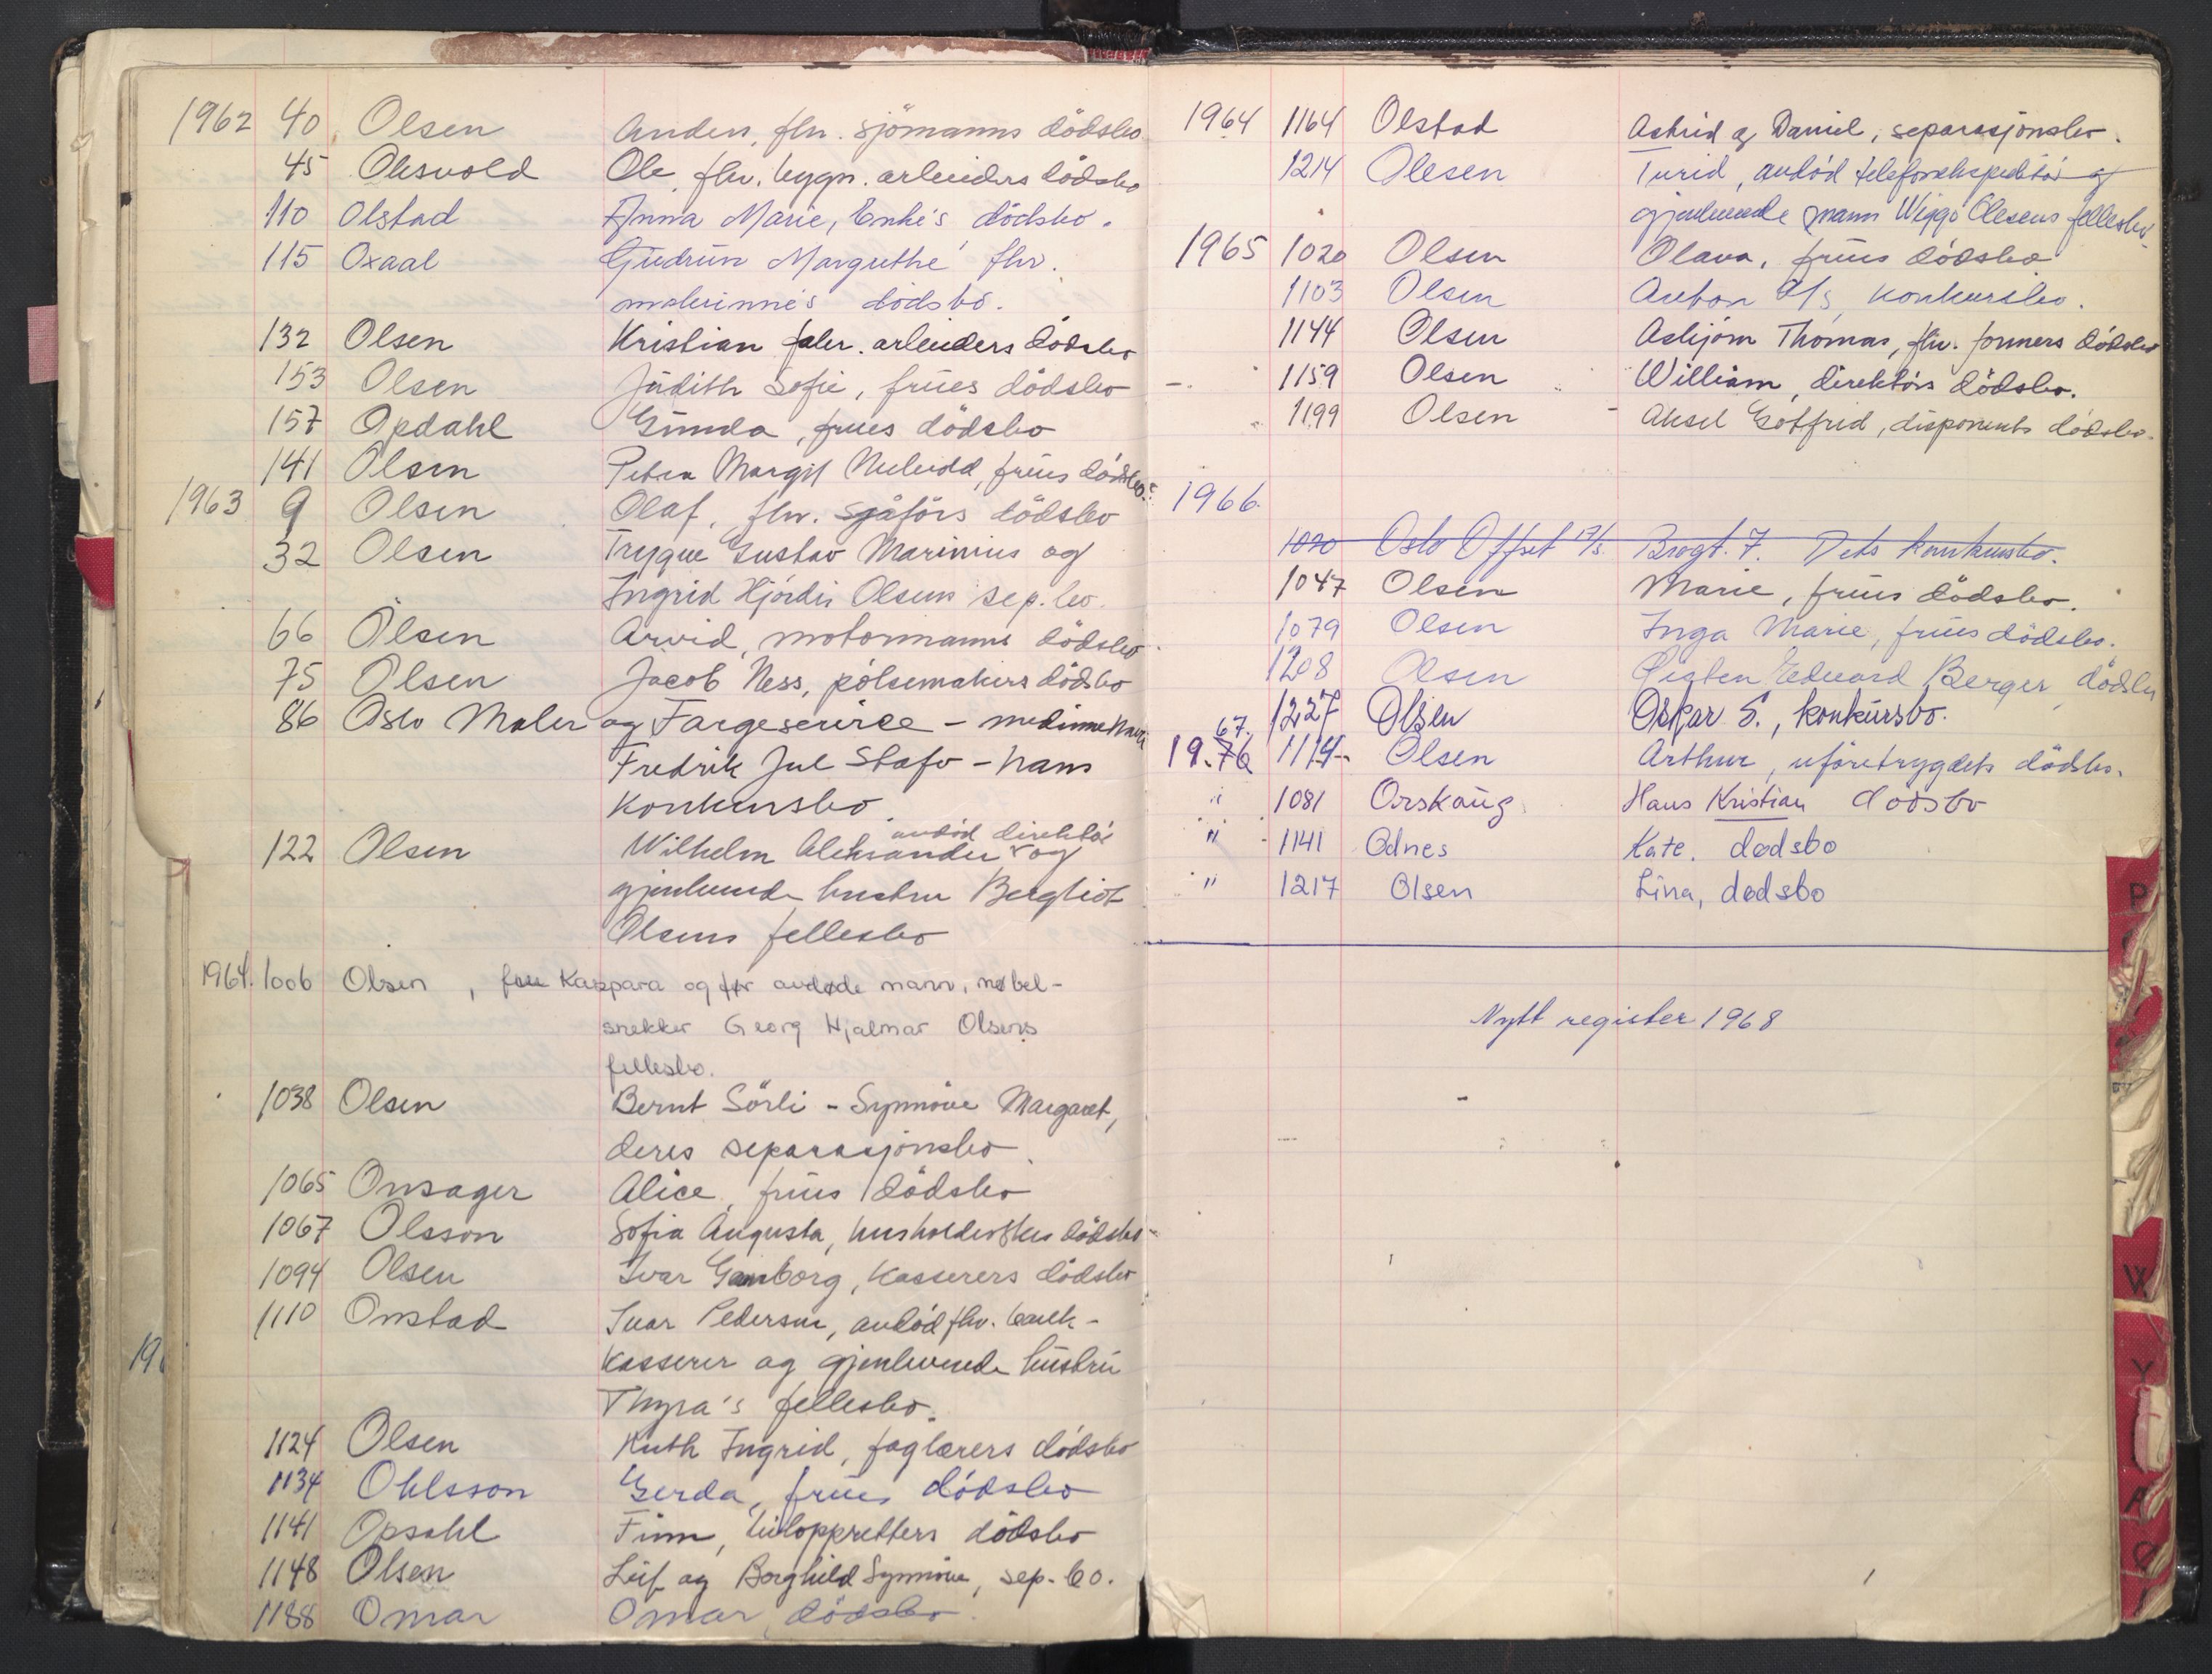 1962 40 Olsen Anders, fhv. sjömanns dödsbo
45 Olesvold Ole, fhv. bygn. arbeiders dödsbo
110 Olstad Anna Marie, Enke's dödsbo.
115 Oxaal Gudrun Margrethe fhv.
malerinne's dödsbo.
132 Olsen Kristian fabr. arbeiders dödsbo
153 Olsen Judith Sofie, frues dödsbo
157 Opdahl Gunda, frues dödsbo
141 Olsen Petra Margit, frues dödsbo.
1963 9 Olsen Olaf, fhv. sjåförs dödsbo
32 Olsen Trygve Gustav Marinius og
Ingrid Hjördis Olsens sep.bo.
66 Olsen Arvid, motormanns dödsbo
75 Olsen Jacob Ness, pölsemakers dödsbo
86 Oslo Maler og Fargeservice - medinnehaver
Fredrik Jul Stafo - hans
konkursbo.
avdöd direktör
122 Olsen Wilhelm Aleksander og
gjenlevende hustru Bergliot
Olsens fellesbo
1964. 1006 Olsen, frue Kaspara og før avdøde mann, møbel-
snekker Georg Hjalmar Olsens
fellesbo.
1038 Olsen Bernt Sörli - Synnöve Margaret,
deres separasjonsbo.
1065 Onsager Alice, frues dödsbo
1067 Olsson Sofia Augusta, husholderskes dödsbo
1094 Olsen Ivar Gamborg, kasserers dödsbo
1110 Onstad Ivar Pedersen, avdöd fhv. bank-
kasserer og gjenlevende hustru
Thyra's fellesbo.
1124 Olsen Ruth Ingrid, faglærers dödsbo
1134 Ohlsson Gerda, frues dödsbo
1141 Opsahl Finn, biloppretters dödsbo
1148 Olsen Leif og Borghild Synnöve, sep. bo.
1188 Omar Omar, dödsbo.
196
1964 1164 Olstad Astrid og Daniel, separasjonsbo.
1214 Olesen Turid, avdöd telefonekspeditör og
gjenlevende mann Wiggo Olesens fellesbo.
1965 1020 Olsen Olava, frues dödsbo
1103 Olsen Anton A/S, konkursbo.
1144 Olsen Asbjörn Thomas, fhv. formers dödsbo
1159 Olsen William, direktörs dödsbo.
1199 Olsen Aksel Gotfred, disponents dödsbo.
1966.
1020 Oslo Offset A/S. Brogt. 7. Dets konkursbo.
1047 Olsen Marie, frues dödsbo.
1079 Olsen Inga Marie, frues dödsbo.
1208 Olsen Öisten Edvard Berger, dödsbo
1227 Olsen Oskar S., konkursbo.
67.
19.76 1114 Olsen Arthur, uföretrygdets dödsbo.
" 1081 Orskaug Hans Kristian dödsbo
" 1141 Odnes Kate. dødsbo
" 1217 Olsen Lina, dødsbo
Nytt register 1968
P
W
Y
Æ
Ø